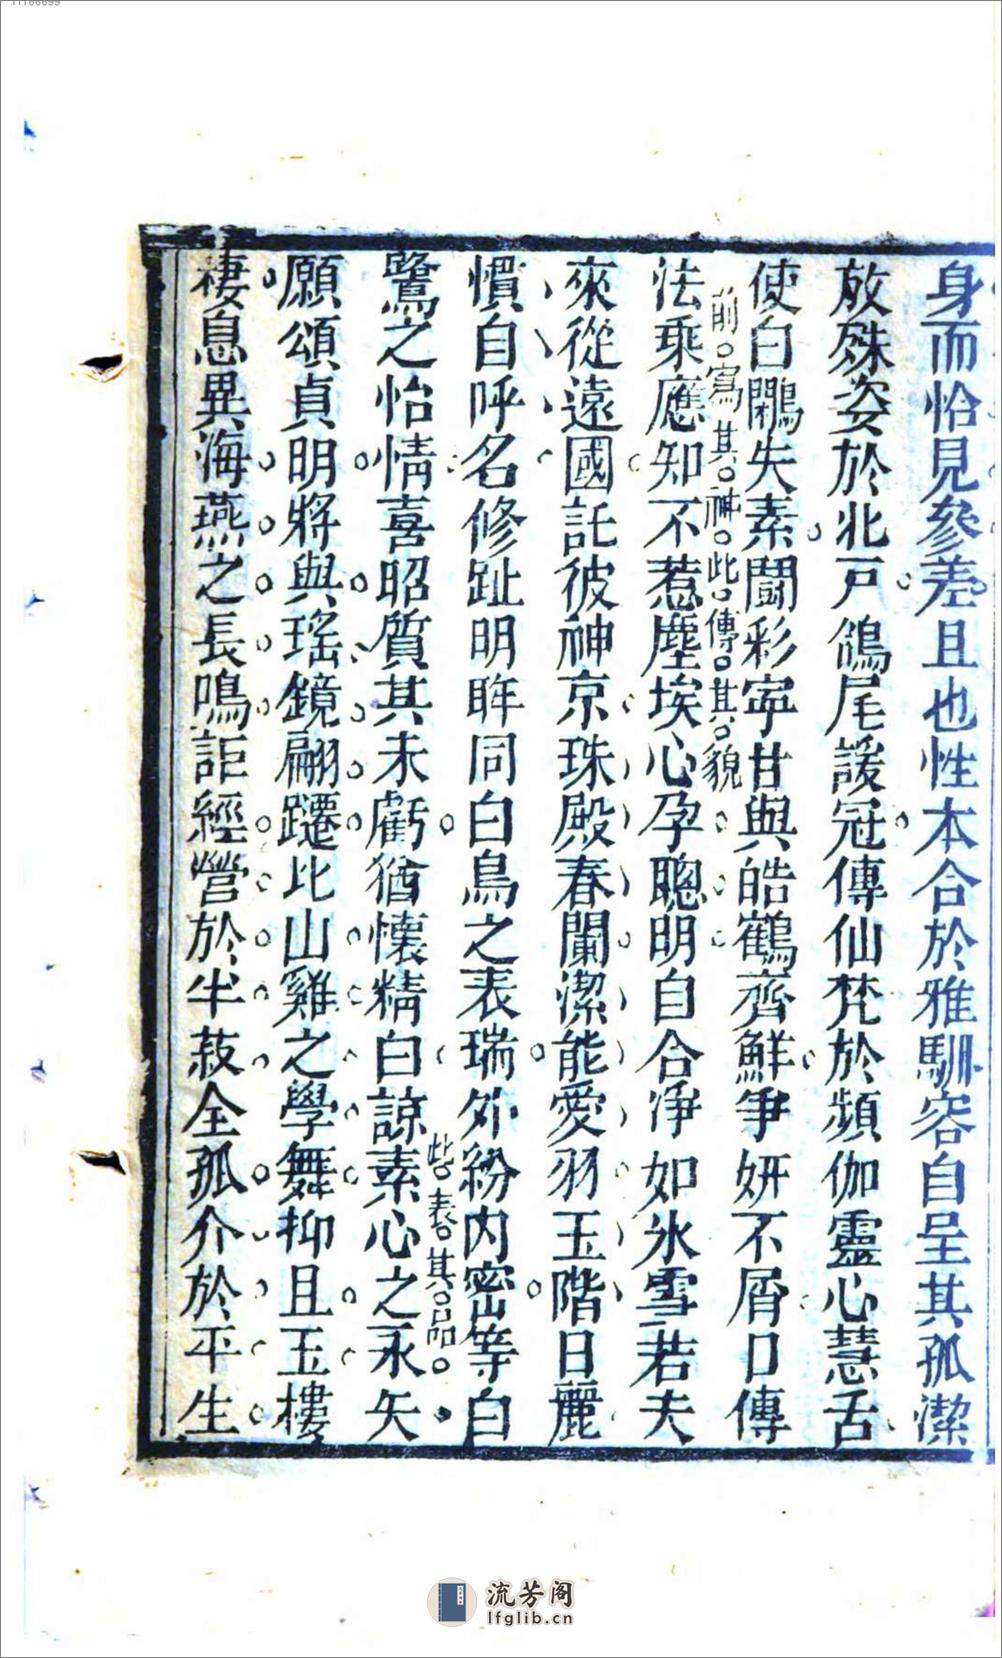 11166699
身而恰見參差且也性本合於雅馴容自呈其孤潔
放殊姿於北戸鴿尾諼冠傳仙梵於頻伽靈心慧舌
使白鷳失素鬪彩寜甘與皓鶴齊鮮爭妍不屑口傳
前寫其神此傳其貌
法乘應知不惹塵埃心孕聰明自合淨如氷雪若夫
來從遠國託彼神京珠殿春闌潔能愛羽玉階日麗
慣自呼名修趾明眸同白鳥之表瑞外紛內密等白
此表其品
鷺之怡情喜昭質其未虧猶懷精白諒素心之永矢
願頌貞明將與瑤鏡翩躚比山雞之學舞抑且玉樓
棲息異海燕之長鳴詎經營於半菽全孤介於平生
流芳阁
lfglib.cn